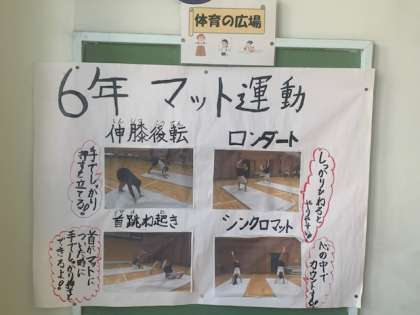 体育の広場
6年 マット運動
伸膝後転
ロンダート
手でしっかり
しっかりひねると
首跳ね起き
シンクロマット
首がマットに
ついた時に
手でしっかり押すと
できるよ!
心の中で
カウントする!